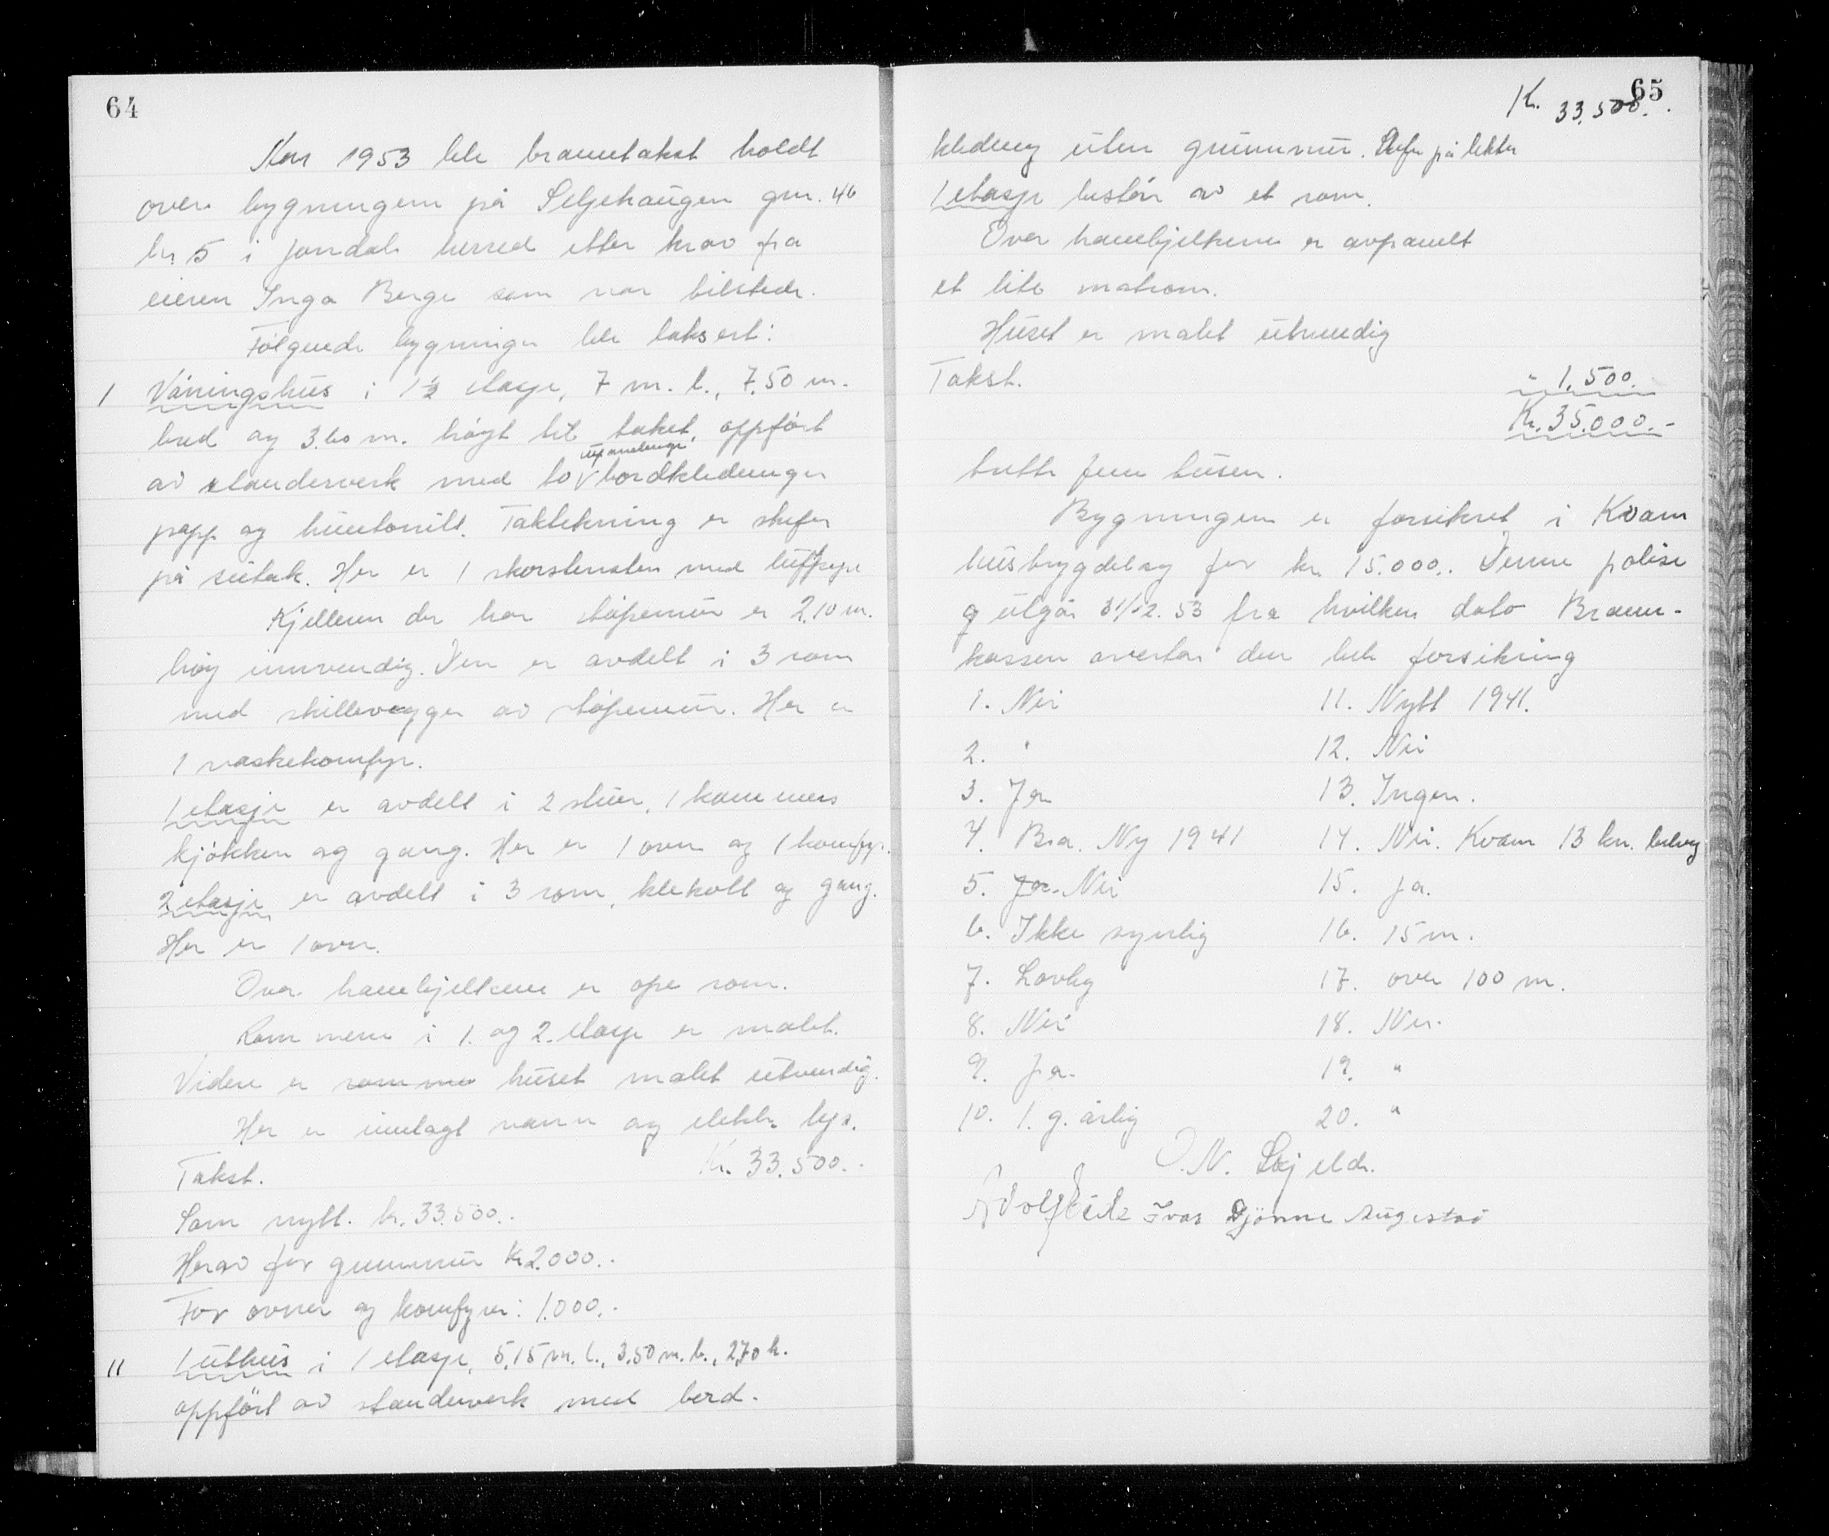 64
1953 ble branntakst holdt
over bygningene på Seljehaugen gnr. 46
br. 5 i Jondal herred etter krav fra
eieren Inga Berge som var tilstede.
Følgende bygninger ble taksert:
1 Våningshus i 1½ etasje, 7 m. l., 7,50 m.
bred og 3.60 m. høyt til taket, oppført
av standerverk med to bordkledninger
papp og huntonitt. Taktekning er skifer
på sutak. Her er 1 skorstensten med
Kjelleren der har støpemur er 2,10 m.
høy innvendig. Den er avdelt i 3 rom
med skillevegger av støpemur. Her er
1 vaskekomfyr.
1 etasje er avdelt i 2 stuer, 1 kammers
kjøkken og gang. Her er 1 ovn og 1 komfyr.
2 etasje er avdelt i 3 rom, klekott og gang.
Her er 1 ovn.
Over hanebjelkene er ope rom.
Rommene i 1. og 2. etasje er malet.
Videre er huset malet utvendig.
Her er innlagt vann og elektr. lys.
Takst. Kr. 33.500.-
Som nytt. kr. 33.500.-
Herav for grunnmur kr 2.000.-
For ovner og komfyrer: 1.000.-
11 1 uthus i 1 etasje, 5,15 m. l., 3,50 m. b., 2,70 h.
oppført av standerverk med bord-
65
Kr. 33.500.-
kledning uten grunnmur. Skifer på lekter
1 etasje består av et rom.
Over hanebjelkene er avpanelt
et lite matrom.
Huset er malet utvendig
Takst. " 1.500.
Kr. 35.000.-
tretti fem tusen.
Bygningene er forsikret i Kvam
husbrygdelag for kr. 15.000.-. Denne polise
utgår 31/12. 53 fra hvilken dato Brann-
kassen overtar den hele forsikring
1. Nei 11. Nytt 1941.
2. " 12. Nei
3. Ja 13. Ingen.
4. Bra. Ny 1941 14. Nei. Kvam 13 km. belveg
5. Ja. Nei 15. Ja.
6. Ikke synlig 16. 15 m.
7. Lovlig 17. over 100 m.
8. Nei 18. Nei.
9. Ja. 19. "
10. 1. g. årlig 20. "
O. N. Skjelde.
Adolf Ivar Djønne Augestad